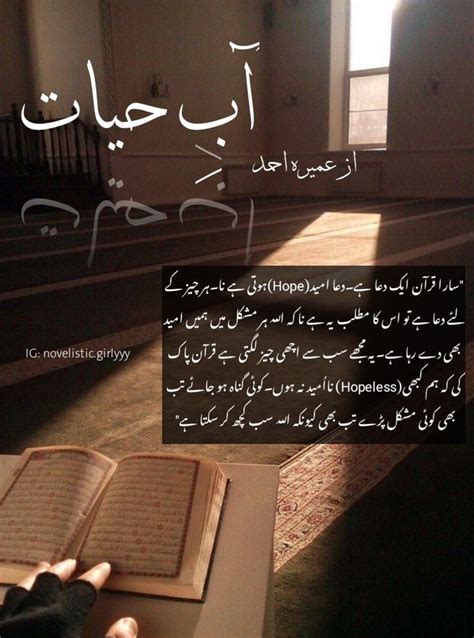 آبِ حیات
از عمیرہ احمد
"سارا قرآن ایک دعا ہے۔دعا امید(Hope)ہوتی ہے نا۔ہر چیز کے
لئے دعا ہے تو اس کا مطلب یہ ہے نا کہ اللہ ہر مشکل میں ہمیں امید
بھی دے رہا ہے۔یہ مجھے سب سے اچھی چیز لگتی ہے قرآن پاک
کی کہ ہم کبھی(Hopeless) نااُمید نہ ہوں۔کوئی گناہ ہو جائے تب
بھی کوئی مشکل پڑے تب بھی کیونکہ اللہ سب کچھ کر سکتا ہے"
IG: novelistic.girlyyy